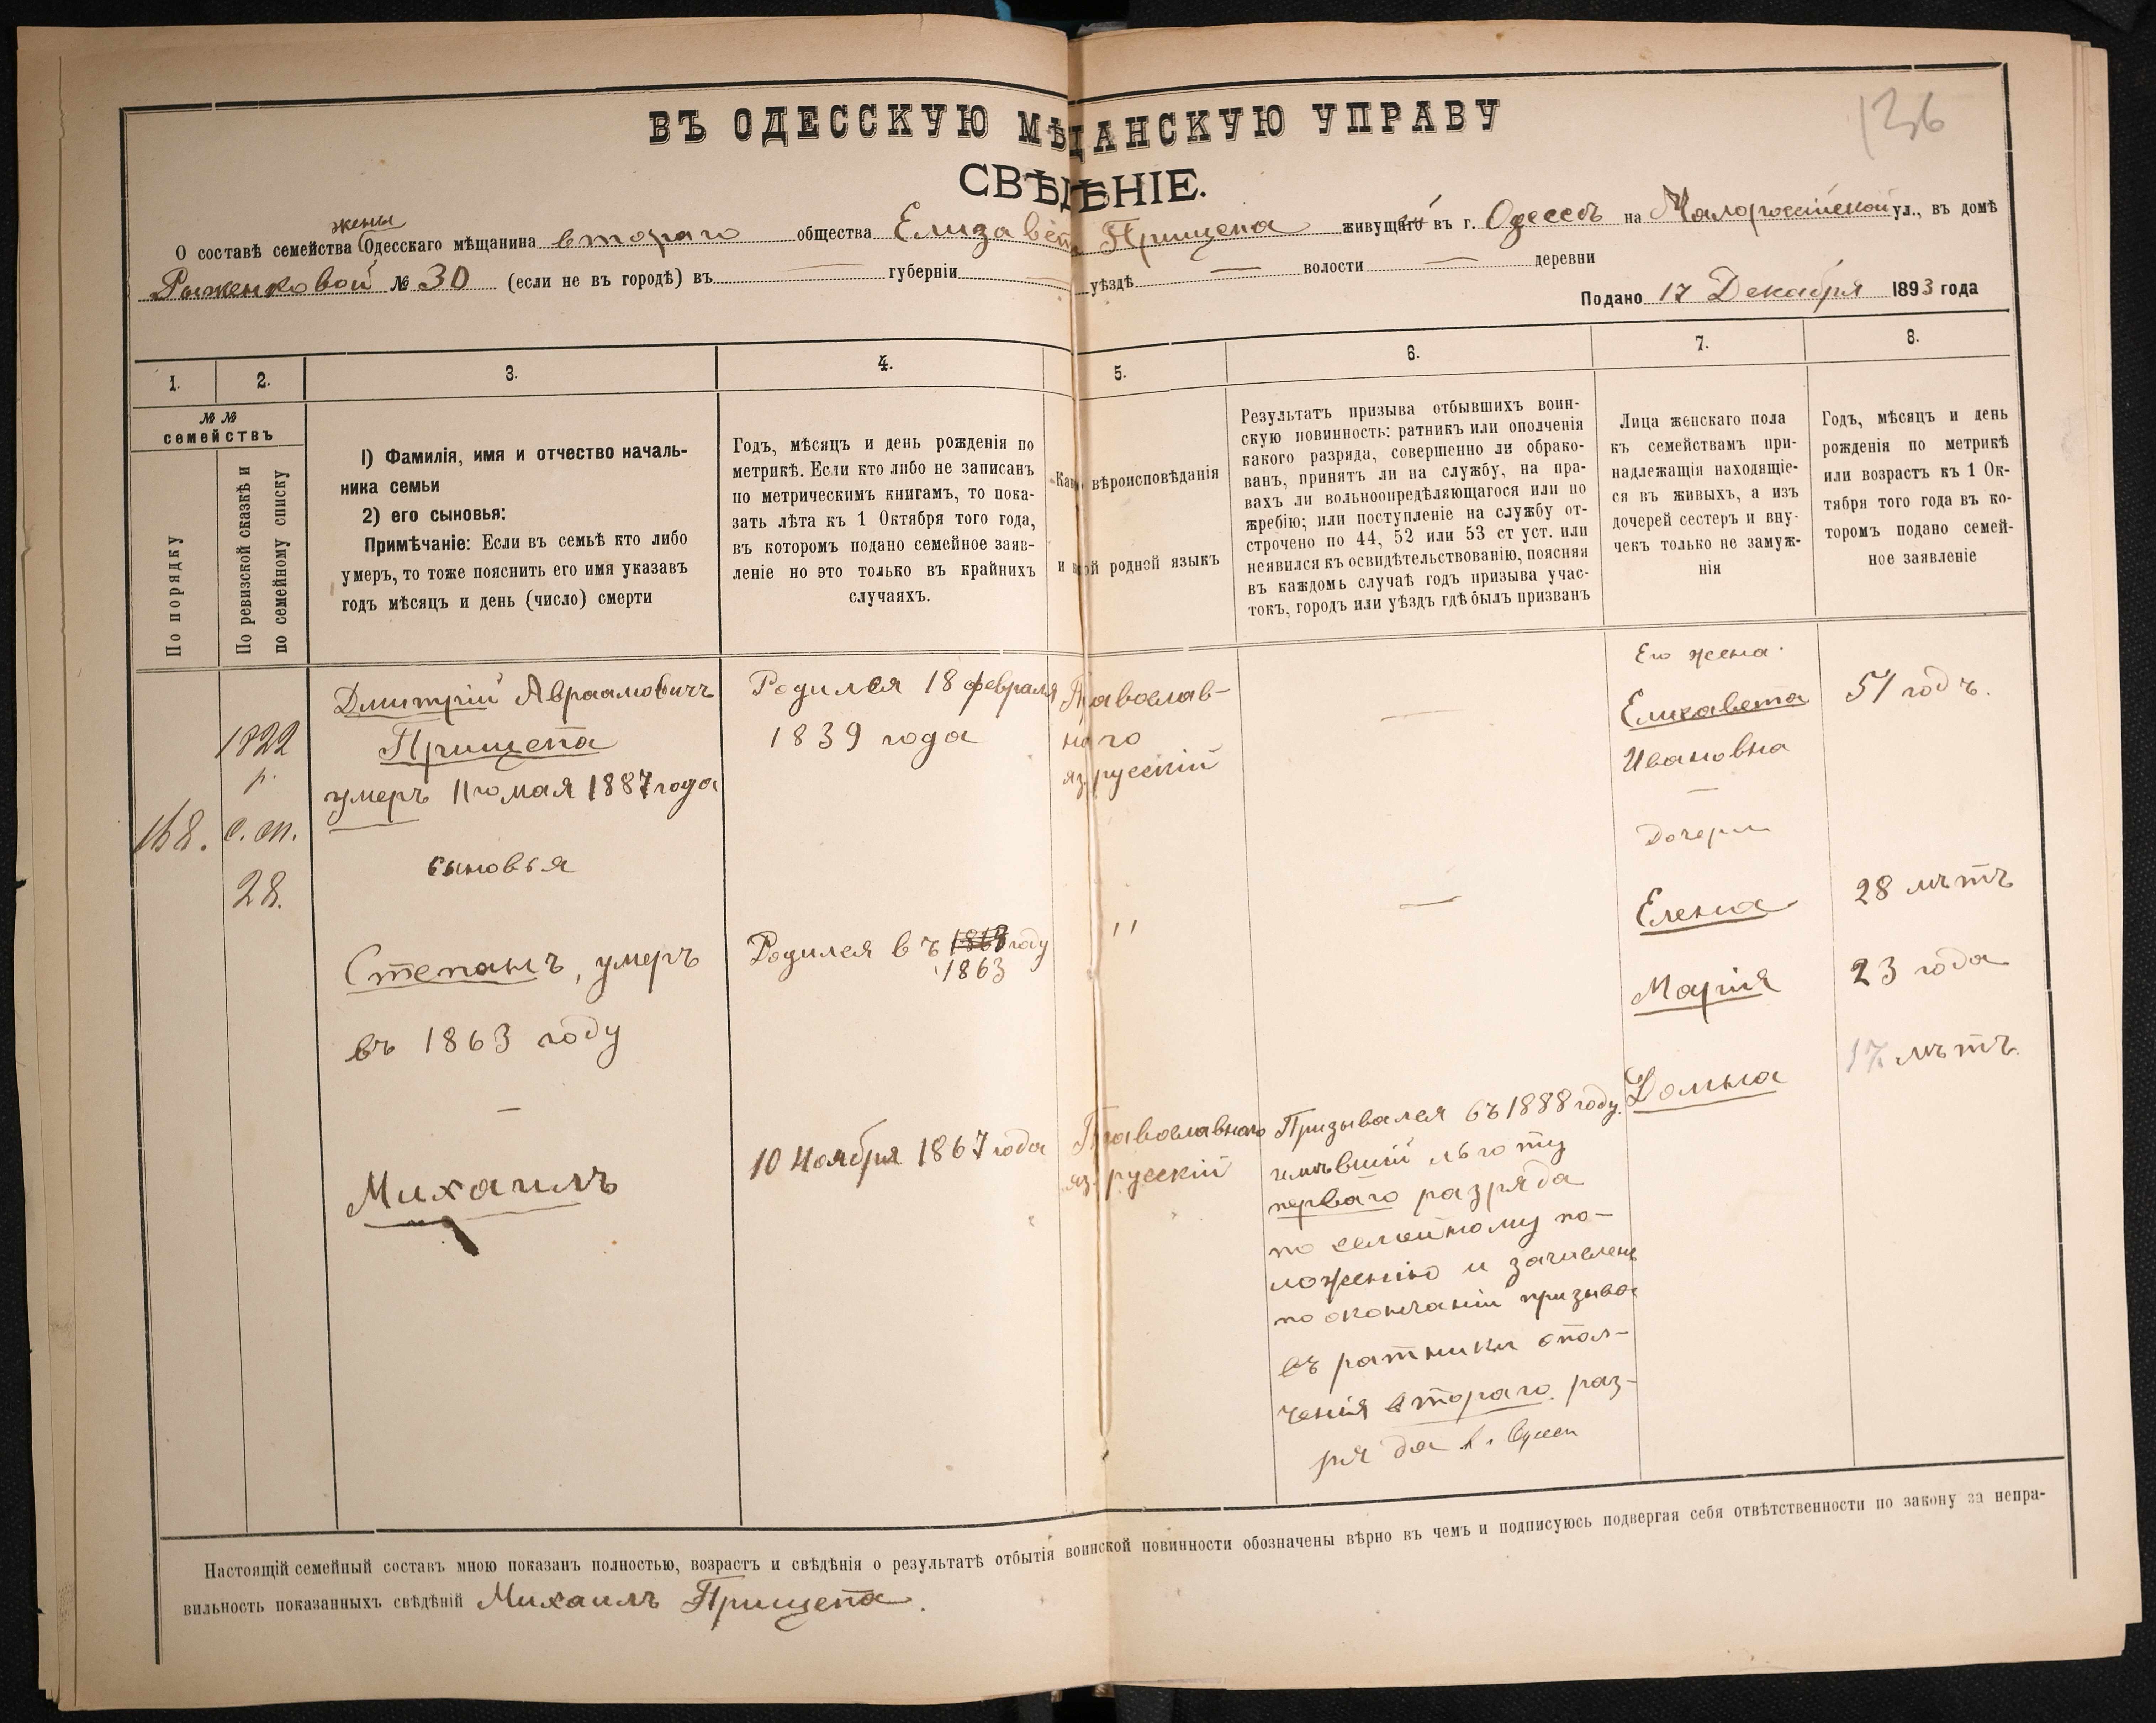 136
ВЪ ОДЕССКУЮ МѢЩАНСКУЮ УПРАВУ
СВѢДѢНІЕ.
жены
О составѣ семейства Одесскаго мѣщанина втораго общества Елизавета Прищепа живущаго въ г. Одессѣ на Малороссійской ул., въ домѣ
Рыженковой № 30 (если не въ городѣ) въ — губерніи — уѣздѣ — волости — деревни
Подано 17 Декабря 1893 года
1. 2. 3. 4. 5. 6. 7. 8.
№ №
семействъ
По порядку
По ревизской сказкѣ и
по семейному списку
1) Фамилія, имя и отчество началь-
ника семьи
2) его сыновья:
Примѣчаніе: Если въ семьѣ кто либо
умеръ, то тоже пояснить его имя указавъ
годъ мѣсяцъ и день (число) смерти
Годъ, мѣсяцъ и день рожденія по
метрикѣ. Если кто либо не записанъ
по метрическимъ книгамъ, то пока-
зать лѣта къ 1 Октября того года,
въ которомъ подано семейное заяв-
леніе но это только въ крайнихъ
случаяхъ.
вѣроисповѣданія
и родной языкъ
Результатъ призыва отбывшихъ воин-
скую повинность: ратникъ или ополченія
какого разряда, совершенно ли обрако-
ванъ, принятъ ли на службу, на пра-
вахъ ли вольноопредѣляющагося или по
жребію; или поступленіе на службу от-
строчено по 44, 52 или 53 ст уст. или
неявился къ освидѣтельствованію, поясняя
въ каждомъ случаѣ годъ призыва учас-
токъ, городъ или уѣздъ гдѣ былъ призванъ
Лица женскаго пола
къ семействамъ при-
надлежащія находящіе-
ся въ живыхъ, а изъ
дочерей сестеръ и вну-
чекъ только не замуж-
нія
Годъ, мѣсяцъ и день
рожденія по метрикѣ
или возрастъ къ 1 Ок-
тября того года въ ко-
торомъ подано семей-
ное заявленіе
168.
1822
р.
с. сп.
28.
Дмитрій Авраамовичъ
Прищепа
умеръ 11го мая 1887 года
сыновья
Степанъ, умеръ
въ 1863 году
—
Михаилъ
Родился 18 февраля
1839 года
Родился въ 1868 году
1863
10 Ноября 1867 года
Православ-
наго
яз. русскій
"
Православнаго
яз. русскій
—
—
Призывался въ 1888 году.
имѣвшій льготу
перваго разряда
по семейному по-
ложенію и зачисленъ
по окончаніи призыва
въ ратники опол-
ченія втораго раз-
ряда
Его жена
Елизавета
Ивановна
—
Дочери
Елена
Марія
Домна
51 годъ.
28 лѣтъ
23 года
17 лѣтъ.
Настоящій семейный составъ мною показанъ полностью, возрастъ и свѣдѣнія о результатѣ отбытія воинской повинности обозначены вѣрно въ чемъ и подписуюсь подвергая себя отвѣтственности по закону за непра-
вильность показанныхъ свѣдѣній Михаилъ Прищепа.